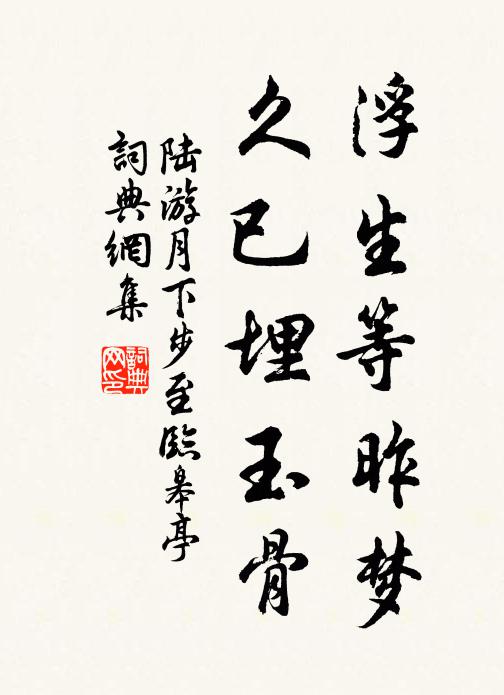 浮生等昨梦
久已埋玉骨
陆游月下步至臨皋亭
詞典網集
詞典网印